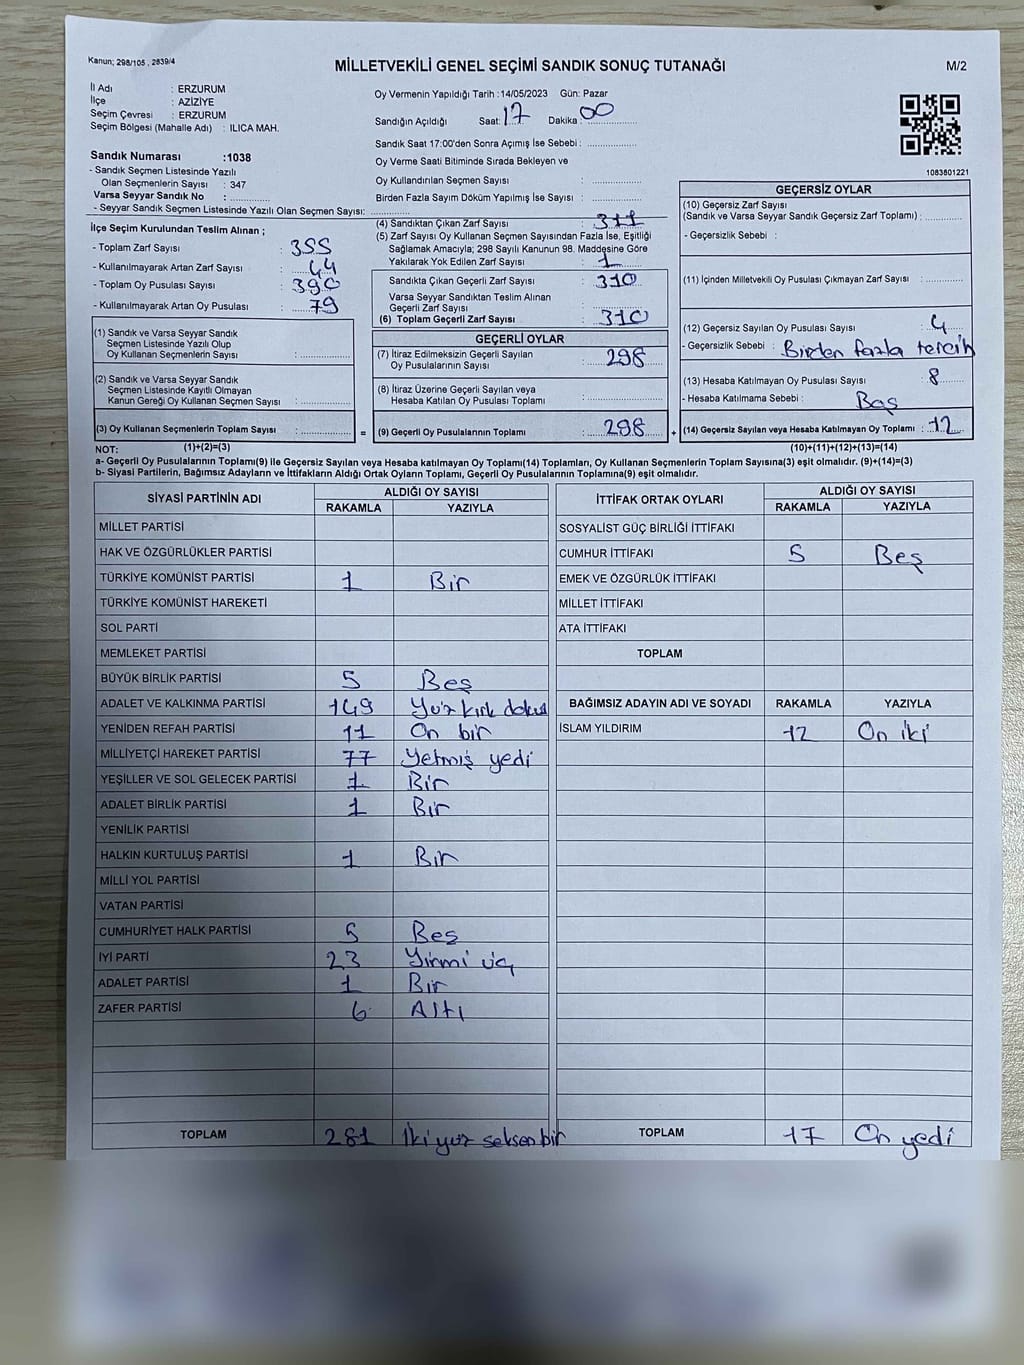 Kanun; 298/105 , 2839/4
MİLLETVEKİLİ GENEL SEÇİMİ SANDIK SONUÇ TUTANAĞI
M/2
İl Adı : ERZURUM
İlçe : AZİZİYE
Seçim Çevresi : ERZURUM
Seçim Bölgesi (Mahalle Adı) : ILICA MAH.
Sandık Numarası :1038
- Sandık Seçmen Listesinde Yazılı
Olan Seçmenlerin Sayısı : 347
Varsa Seyyar Sandık No :
- Seyyar Sandık Seçmen Listesinde Yazılı Olan Seçmen Sayısı:
Oy Vermenin Yapıldığı Tarih :14/05/2023 Gün: Pazar
Sandığın Açıldığı Saat: 17 Dakika : 00
Sandık Saat 17:00'den Sonra Açımış İse Sebebi :
Oy Verme Saati Bitiminde Sırada Bekleyen ve
Oy Kullandırılan Seçmen Sayısı :
Birden Fazla Sayım Döküm Yapılmış İse Sayısı :
1083801221
İlçe Seçim Kurulundan Teslim Alınan ;
- Toplam Zarf Sayısı : 355
- Kullanılmayarak Artan Zarf Sayısı : 44
- Toplam Oy Pusulası Sayısı : 390
- Kullanılmayarak Artan Oy Pusulası : 79
(1) Sandık ve Varsa Seyyar Sandık
Seçmen Listesinde Yazılı Olup
Oy Kullanan Seçmenlerin Sayısı :
(2) Sandık ve Varsa Seyyar Sandık
Seçmen Listesinde Kayıtlı Olmayan
Kanun Gereği Oy Kullanan Seçmen Sayısı :
(3) Oy Kullanan Seçmenlerin Toplam Sayısı : =
(4) Sandıktan Çıkan Zarf Sayısı : 311
(5) Zarf Sayısı Oy Kullanan Seçmen Sayısından Fazla İse, Eşitliği
Sağlamak Amacıyla; 298 Sayılı Kanunun 98. Maddesine Göre
Yakılarak Yok Edilen Zarf Sayısı : 1
Sandıkta Çıkan Geçerli Zarf Sayısı : 310
Varsa Seyyar Sandıktan Teslim Alınan
Geçerli Zarf Sayısı :
(6) Toplam Geçerli Zarf Sayısı : 310
GEÇERLİ OYLAR
(7) İtiraz Edilmeksizin Geçerli Sayılan
Oy Pusulalarının Sayısı : 298
(8) İtiraz Üzerine Geçerli Sayılan veya
Hesaba Katılan Oy Pusulası Toplamı :
(9) Geçerli Oy Pusulalarının Toplamı : 298 +
GEÇERSİZ OYLAR
(10) Geçersiz Zarf Sayısı
(Sandık ve Varsa Seyyar Sandık Geçersiz Zarf Toplamı) :
- Geçersizlik Sebebi :
(11) İçinden Milletvekili Oy Pusulası Çıkmayan Zarf Sayısı :
(12) Geçersiz Sayılan Oy Pusulası Sayısı : 4
- Geçersizlik Sebebi : Birden fazla tercih
(13) Hesaba Katılmayan Oy Pusulası Sayısı : 8
- Hesaba Katılmama Sebebi : Boş
(14) Geçersiz Sayılan veya Hesaba Katılmayan Oy Toplamı : 12
NOT: (1)+(2)=(3) (10)+(11)+(12)+(13)=(14)
a- Geçerli Oy Pusulalarının Toplamı(9) ile Geçersiz Sayılan veya Hesaba katılmayan Oy Toplamı(14) Toplamları, Oy Kullanan Seçmenlerin Toplam Sayısına(3) eşit olmalıdır. (9)+(14)=(3)
b- Siyasi Partilerin, Bağımsız Adayların ve İttifakların Aldığı Ortak Oyların Toplamı, Geçerli Oy Pusulalarının Toplamına(9) eşit olmalıdır.
SİYASİ PARTİNİN ADI ALDIĞI OY SAYISI
RAKAMLA YAZIYLA
MİLLET PARTİSİ
HAK VE ÖZGÜRLÜKLER PARTİSİ
TÜRKİYE KOMÜNİST PARTİSİ 1 Bir
TÜRKİYE KOMÜNİST HAREKETİ
SOL PARTİ
MEMLEKET PARTİSİ
BÜYÜK BİRLİK PARTİSİ 5 Beş
ADALET VE KALKINMA PARTİSİ 149 Yüz kırk dokuz
YENİDEN REFAH PARTİSİ 11 On bir
MİLLİYETÇİ HAREKET PARTİSİ 77 Yetmiş yedi
YEŞİLLER VE SOL GELECEK PARTİSİ 1 Bir
ADALET BİRLİK PARTİSİ 1 Bir
YENİLİK PARTİSİ
HALKIN KURTULUŞ PARTİSİ 1 Bir
MİLLİ YOL PARTİSİ
VATAN PARTİSİ
CUMHURİYET HALK PARTİSİ 5 Beş
İYİ PARTİ 23 Yirmi üç
ADALET PARTİSİ 1 Bir
ZAFER PARTİSİ 6 Altı
TOPLAM 281 İki yüz seksen bir
İTTİFAK ORTAK OYLARI ALDIĞI OY SAYISI
RAKAMLA YAZIYLA
SOSYALİST GÜÇ BİRLİĞİ İTTİFAKI
CUMHUR İTTİFAKI 5 Beş
EMEK VE ÖZGÜRLÜK İTTİFAKI
MİLLET İTTİFAKI
ATA İTTİFAKI
TOPLAM
BAĞIMSIZ ADAYIN ADI VE SOYADI RAKAMLA YAZIYLA
İSLAM YILDIRIM 12 On iki
TOPLAM 17 On yedi